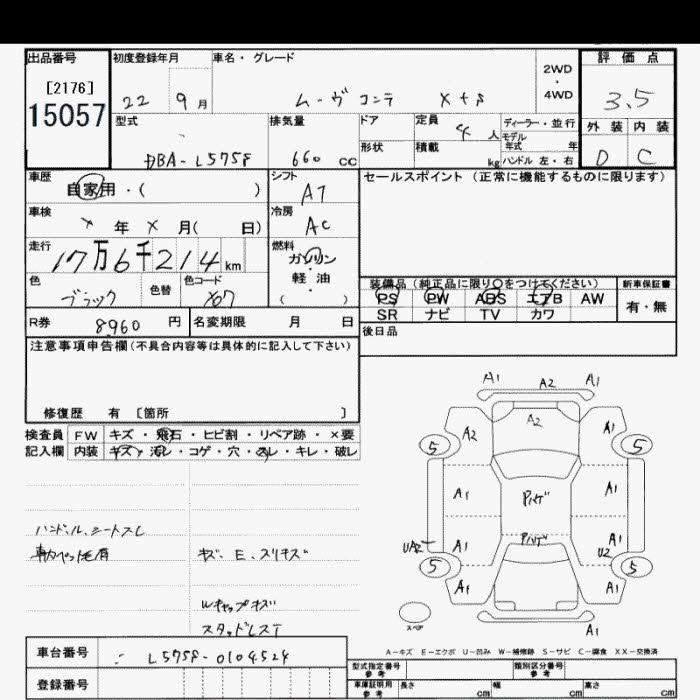 出品番号
[2176]
15057
初度登録年月
22 9月
車名・グレード
ムーヴ コンテ X+S
2WD
・
4WD
評価点
3.5
外装 内装
D C
型式
DBA-L575S
排気量
660 CC
ドア
形状
定員
4人
積載
kg
ディーラー・並行
モデル年式 年
ハンドル 左・右
車歴
自家用・( )
シフト
A7
セールスポイント (正常に機能するものに限ります)
車検
× 年 × 月( 日)
冷房
AC
走行
17万6千214km
燃料
ガソリン
・
軽油
( )
色
ブラック
色替
色コード
X07
装備品 (純正品に限り○をつけてください)
PS PW ABS エアB AW
SR ナビ TV カワ
新車保証書
有・無
R券
8960 円
名変期限 月 日
後日品
注意事項申告欄(不具合内容等は具体的に記入して下さい)
修復歴 有 [箇所 ]
検査員 FW キズ・飛石・ヒビ割・リペア跡・×要
記入欄 内装 キズ・汚レ・コゲ・穴・スレ・キレ・破レ
ハンドル、シートスレ
キズ、E、スリキズ
Wキャップキズ
スタッドレスT
A1 A2 A1
A2 A2 A1
5 5
A1 A1
UA2 A1 A1 U2
5 5
A1 A1
スペア
A1
A-キズ E-エクボ U-凹み W-補修跡 S-サビ C-腐食 XX-交換済
車台番号
L575S-0104524
登録番号
型式指定番号
参考
類別区分番号
参考
車庫証明用
参考
長さ cm 幅 cm 高さ cm